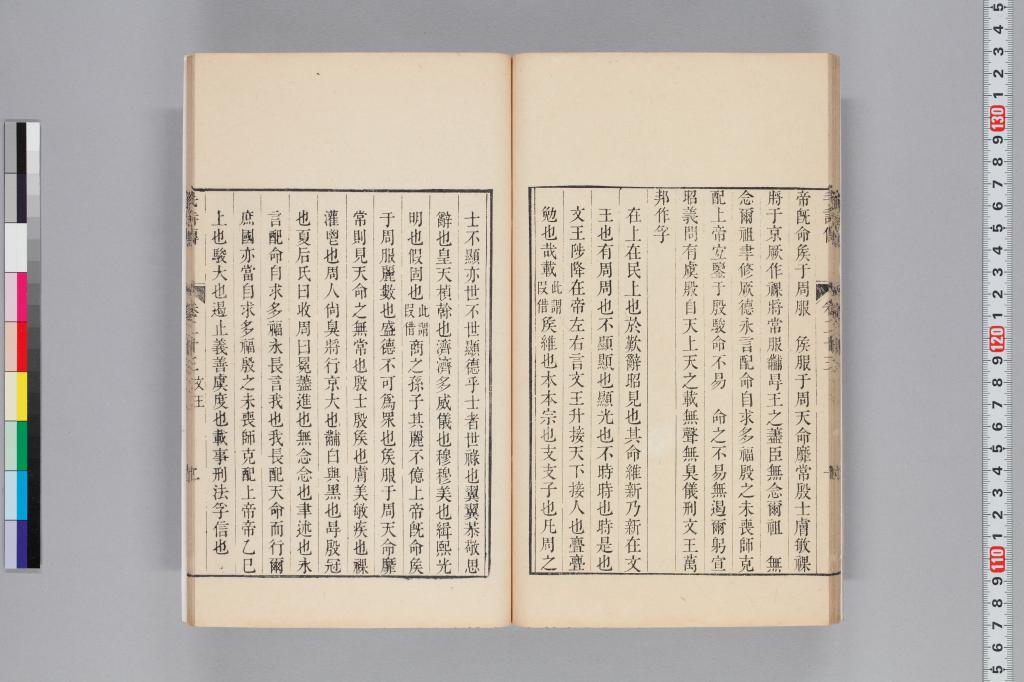 帝旣命矦于周服　矦服于周天命靡常殷士膚敏祼
將于京厥作祼將常服黼冔王之藎臣無念爾祖　無
念爾祖聿修厥德永言配命自求多福殷之未喪師克
配上帝宜鑒于殷駿命不易　命之不易無遏爾躬宣
昭義問有虞殷自天上天之載無聲無臭儀刑文王萬
邦作孚
在上在民上也於歎辭昭見也其命維新乃新在文
王也有周周也不顯顯也顯光也不時時也時是也
文王陟降在帝左右言文王升接天下接人也亹亹
勉也哉載此謂叚借矦維也本本宗也支支子也凡周之
士不顯亦世不世顯德乎士者世祿也翼翼恭敬思
辭也皇天楨榦也濟濟多威儀也穆穆美也緝熙光
明也假固也此謂叚借商之孫子其麗不億上帝旣命矦
于周服麗數也盛德不可爲眾也矦服于周天命靡
常則見天命之無常也殷士殷矦也膚美敏疾也祼
灌鬯也周人尙臭將行京大也黼白與黑也冔殷冠
也夏后氏曰收周曰冕藎進也無念念也聿述也永
言配命自求多福永長言我也我長配天命而行爾
庶國亦當自求多福殷之未喪師克配上帝帝乙已
上也駿大也遏止義善虞度也載事刑法孚信也
文王